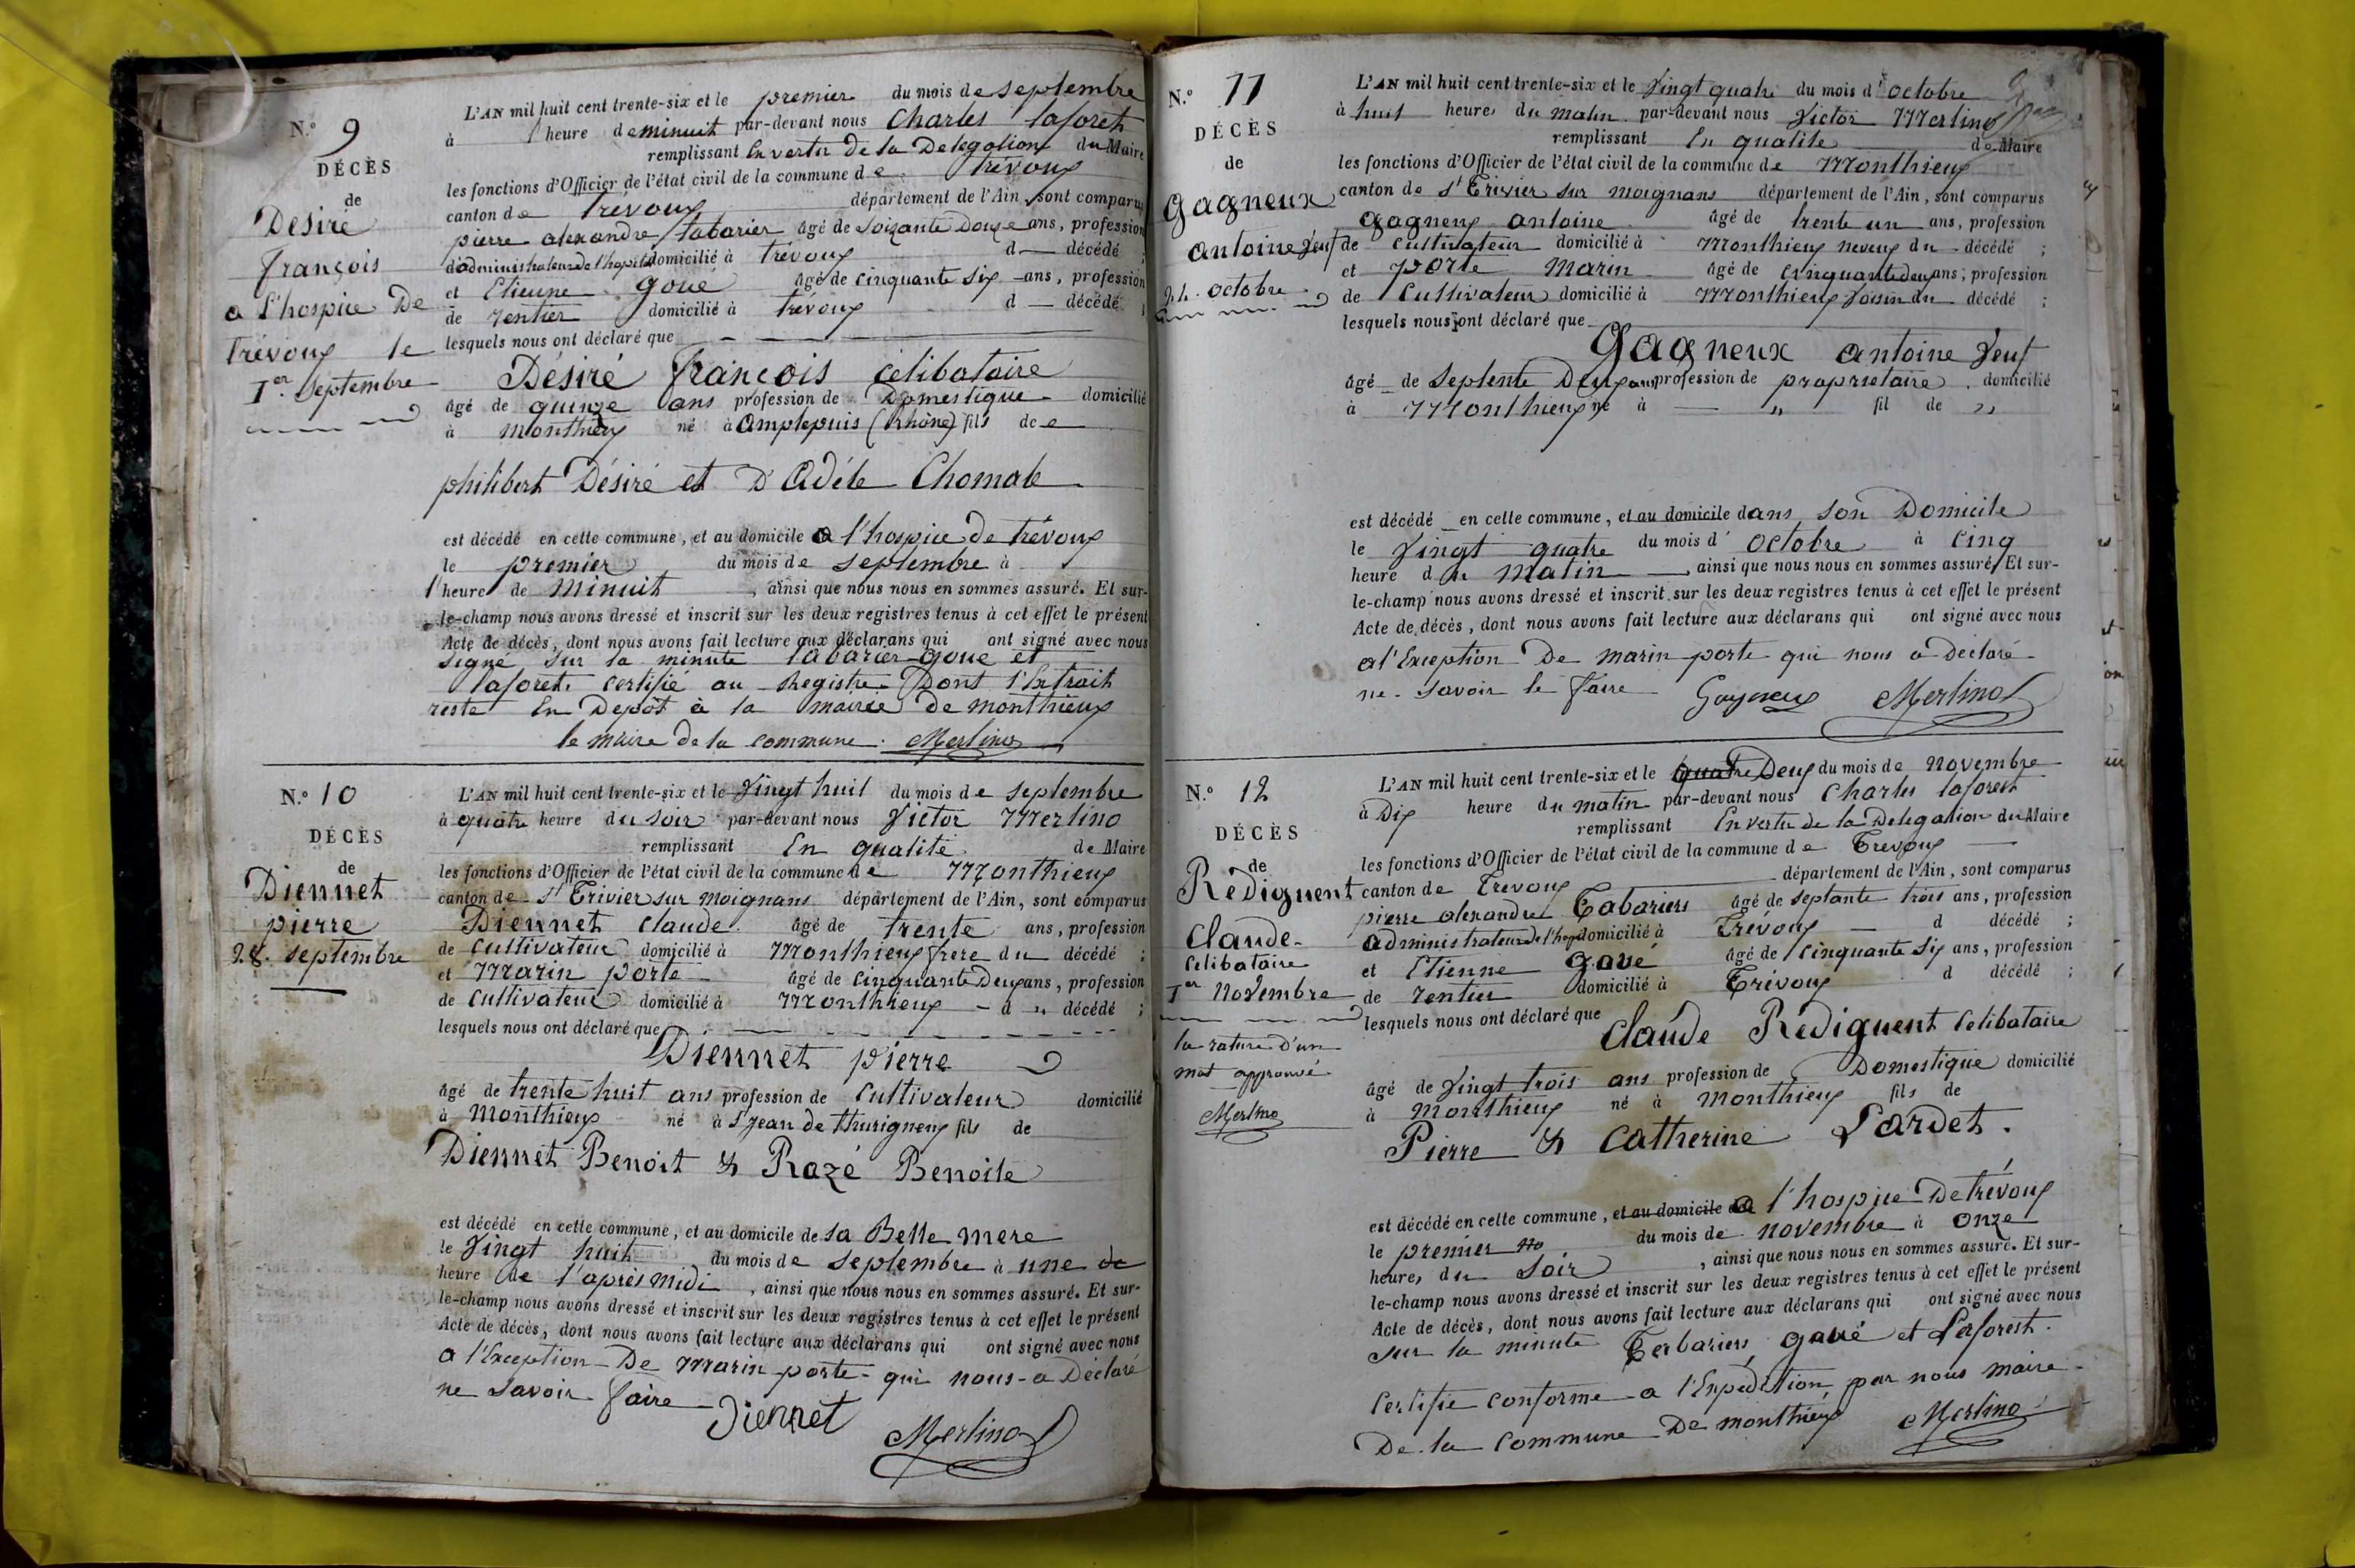 N.º 9
DÉCÈS
de
Désiré
françois
a l'hospice De
trévoux le
1er. septembre
L'AN mil huit cent trente-six et le premier du mois de septembre
à 1 heure de minuit par-devant nous Charles laforet
remplissant En vertu De la Delegation du Maire
les fonctions d'Officier de l'état civil de la commune de trévoux
canton de trévoux département de l'Ain, sont comparus
pierre alexandre tabarier âgé de soixante Douze ans, profession
d'administrateur de l'hopital domicilié à trévoux d décédé ;
et Etienne goué âgé de cinquante six ans, profession
de rentier domicilié à trévoux d décédé ;
lesquels nous ont déclaré que
Désiré françois célibataire
âgé de quinze ans profession de Domestique domicilié
à monthieux né à Amplepuis (Rhône) fils de
philibert Désiré et D'Adéle Chomat
est décédé en cette commune, et au domicile a l'hospice de trévoux
le premier du mois de septembre à
1 heure de minuit, ainsi que nous nous en sommes assuré. Et sur-
le-champ nous avons dressé et inscrit sur les deux registres tenus à cet effet le présent
Acte de décès, dont nous avons fait lecture aux déclarans qui ont signé avec nous
signé sur la minute tabarier goue et
laforet. certifié au Registre Dont l'Extrait
reste En Depot a la mairie De monthieux
le maire de la commune. Merlino
N.º 10
DÉCÈS
de
Diennet
pierre
28. septembre
L'AN mil huit cent trente-six et le Vingt huit du mois de septembre
à quatre heure du soir par-devant nous Victor Merlino
remplissant En qualité de Maire
les fonctions d'Officier de l'état civil de la commune de Monthieux
canton de St Trivier sur moignans département de l'Ain, sont comparus
Diennet claude âgé de trente ans, profession
de cultivateur domicilié à Monthieux frere du décédé ;
et Marin porte âgé de cinquante Deux ans, profession
de cultivateur domicilié à Monthieux d décédé ;
lesquels nous ont déclaré que
Diennet pierre
âgé de trente huit ans profession de Cultivateur domicilié
à Monthieux né à St jean de thurigneux fils de
Diennet Benoit & Razé Benoite
est décédé en cette commune, et au domicile de sa Belle mere
le Vingt huit du mois de septembre à une
heure de l'après midi, ainsi que nous nous en sommes assuré. Et sur-
le-champ nous avons dressé et inscrit sur les deux registres tenus à cet effet le présent
Acte de décès, dont nous avons fait lecture aux déclarans qui ont signé avec nous
a l'Exception De Marin porte qui nous a Déclaré
ne savoir faire Diennet
Merlino
N.º 11
DÉCÈS
de
Gagneux
antoine Veuf
24. octobre
L'AN mil huit cent trente-six et le Vingt quatre du mois d'octobre
à huit heures du matin par-devant nous Victor Merlino
remplissant En qualité de Maire
les fonctions d'Officier de l'état civil de la commune de Monthieux
canton de St Trivier sur moignans département de l'Ain, sont comparus
gagneux antoine âgé de trente un ans, profession
de cultivateur domicilié à Monthieux neveux du décédé ;
et porte Marin âgé de cinquante deux ans, profession
de Cultivateur domicilié à Monthieux Voisin du décédé ;
lesquels nous ont déclaré que
Gagneux antoine Veuf
âgé de septente Deux ans profession de propriétaire domicilié
à Monthieux né à " fil de "
est décédé en cette commune, et au domicile dans son Domicile
le Vingt quatre du mois d'octobre à cinq
heure du Matin, ainsi que nous nous en sommes assuré. Et sur-
le-champ nous avons dressé et inscrit sur les deux registres tenus à cet effet le présent
Acte de décès, dont nous avons fait lecture aux déclarans qui ont signé avec nous
a l'Exception De marin porte qui nous a Déclaré
ne savoir le faire Gagneux Merlino
N.º 12
DÉCÈS
de
Rédiguent
Claude
celibataire
1er Novembre
la rature d'un
mot approuvé
Merlino
L'AN mil huit cent trente-six et le quatre Deux du mois de Novembre
à Dix heure du matin par-devant nous Charles laforest
remplissant En vertu de la Delegation du Maire
les fonctions d'Officier de l'état civil de la commune de Trevoux
canton de Trevoux département de l'Ain, sont comparus
pierre alexandre Tabariers âgé de septante trois ans, profession
administrateur de l'hop domicilié à Trévoux d décédé ;
et Etienne gavé âgé de cinquante six ans, profession
de rentier domicilié à Trévoux d décédé ;
lesquels nous ont déclaré que
Claude Rédiguent celibataire
âgé de Vingt trois ans profession de Domestique domicilié
à Monthieux né à Monthieux fils de
Pierre & Catherine Lardet.
est décédé en cette commune, et au domicile a l'hospice De trévoux
le premier no du mois de novembre à onze
heures du soir, ainsi que nous nous en sommes assuré. Et sur-
le-champ nous avons dressé et inscrit sur les deux registres tenus à cet effet le présent
Acte de décès, dont nous avons fait lecture aux déclarans qui ont signé avec nous
sur la minute Tabariers gavé et Laforest.
Certifie conforme a l'Expedition par nous maire
De la commune De monthieux Merlino